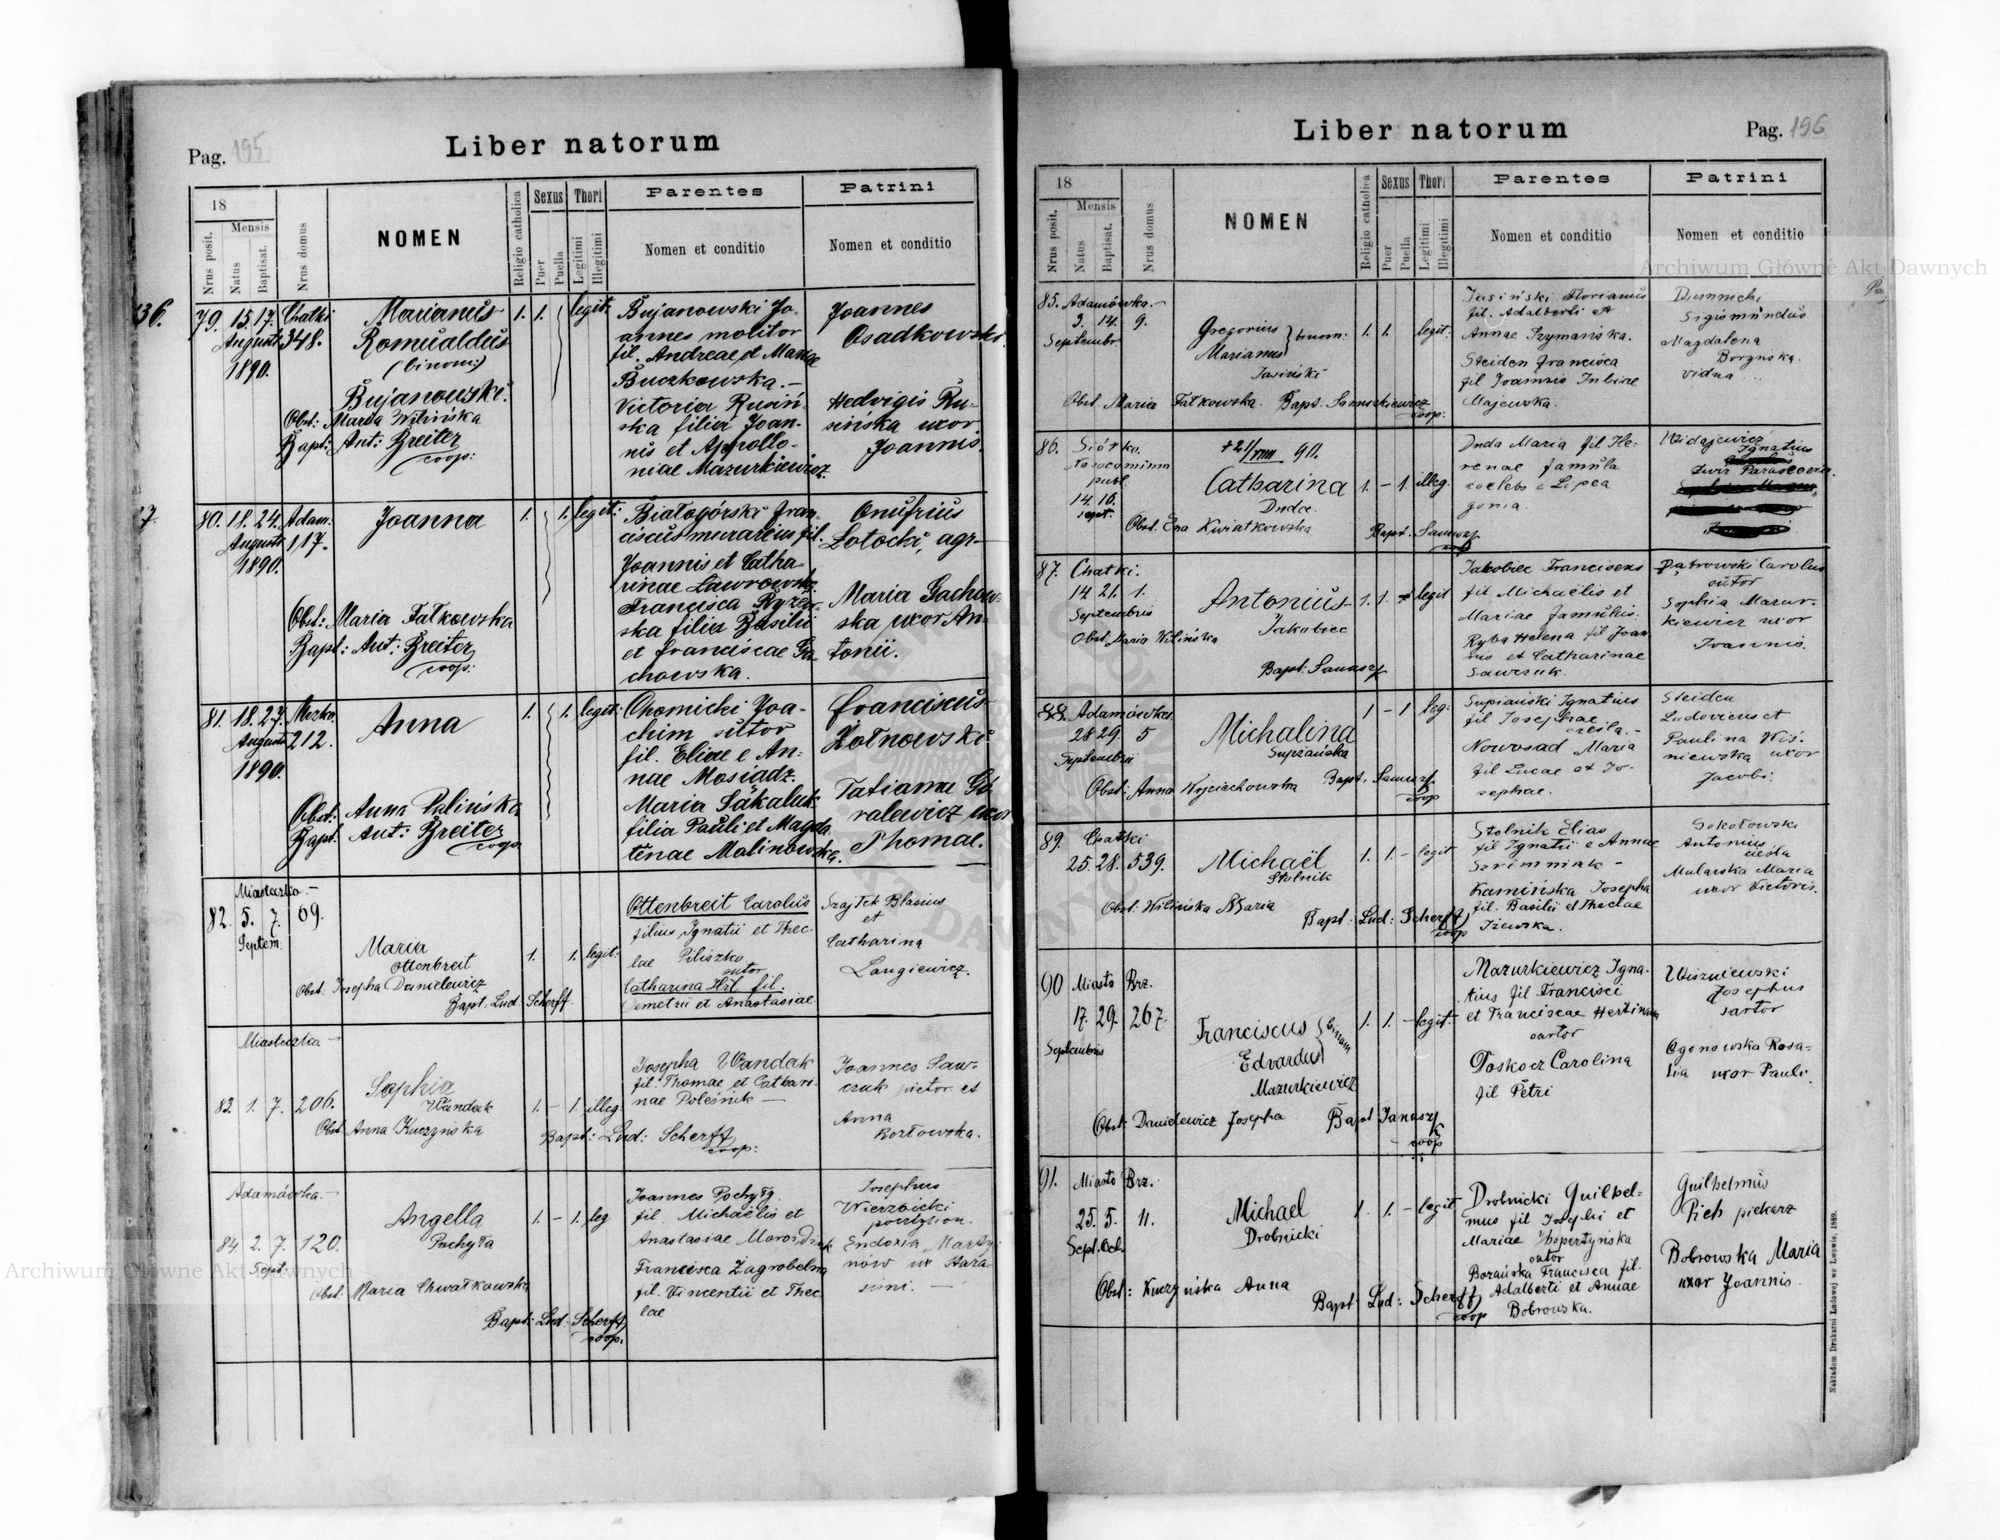 Pag. 195
Liber natorum
18
Mensis
Nrus posit.
Natus
Baptisat.
Nrus domus
NOMEN
Religio catholica
Sexus
Puer
Puella
Thori
Legitimi
Illegitimi
Parentes
Nomen et conditio
Patrini
Nomen et conditio
36.
79. 15. 17. Chatki
August. 348.
1890.
Marianus
Romualdus
(binom:)
Bujanowski.
Obst: Maria Wilińska
Bapt: Ant: Breiter
coop:
1. 1. legit:
Bujanowski Jo-
annes molitor
fil. Andreae et Mariae
Buczkowska. —
Victoria Rusiń-
ska filia Joan-
nis et Appollo-
niae Mazurkiewicz.
Joannes
Osadkowski
Hedvigis Ru-
sińska uxor
Joannis.
7.
80. 18. 24. Adam.
Augusti 117.
1890.
Joanna
Obst: Maria Fatkowska
Bapt: Ant: Breiter
coop:
1. 1. legit:
Białogórski Fran-
ciscus murarius fil.
Joannis et Catha
rinae Lawrowsk.
Francisca Ryzew-
ska filia Basilii
et Franciscae Ga
chowska.
Onufrius
Lotocki, agr-
Maria Gachow-
ska uxor An-
tonii.
81. 18. 27. Mczko.
Augusti 212.
1890.
Anna
Obst: Anna Palińska
Bapt: Ant: Breiter
coop
1. 1. legit:
Chomicki Joa-
chim sutor
fil. Eliae e An-
nae Mosiądz.
Maria Sakaluk
filia Pauli et Magda
lenae Malinowska.
Franciscus
Żołnowski
Tatianna Gó
ralewicz uxor
Thomae.
Miasteczko. —
82. 5. 7. 69.
Septem.
Maria
Ottenbreit
Obst. Josepha Danielewicz
Bapt. Lud. Scherff.
1. 1. legit:
Ottenbreit Carolus
filius Ignatii et Thec-
lae Piliszko
sutor
Catharina Hil fil.
Demetrii et Anastasiae
Szajtek Blasius
et
Catharina
Langiewicz.
Miasteczko —
83. 1. 7. 206.
Sophia
Wandak
Obst Anna Kuczyńska
1. – 1. illeg.
Bapt: Lud: Scherff
coop:
Josepha Wandak
fil. Thomae et Cathari-
nae Poleśnik —
Joannes Saw-
czuk pictor et
Anna
Kozłowska.
Adamówka. —
84 2. 7. 120.
Sept.
Angella
Pochyła
Obst. Maria Chwałkowska
Bapt: Lud: Scherff
coop.
1. – 1. leg
Joannes Pochyły
fil. Michaëlis et
Anastasiae
Francisca Zagrobelna
fil. Vincentii et Thec-
lae
Josephus
Wierzbicki
Eudoxia Marty-
nów ux Hara-
simi. —
Liber natorum
Pag. 196
18
Mensis
Nrus posit.
Natus
Baptisat.
Nrus domus
NOMEN
Religio catholica
Sexus
Puer
Puella
Thori
Legitimi
Illegitimi
Parentes
Nomen et conditio
Patrini
Nomen et conditio
85. Adamówka. —
3. 14. 9.
Septembr.
Gregorius
Marianus binom:
Jasiński
Obst. Maria Fatkowska. Bapt.
coop:
1. 1. legit:
Jasiński Florianus
fil. Adalberti et
Annae Szymańska.
Steiden Francisca
fil Joannis
Majewska.
Dumnicki
Sigismundus
Magdalena
vidua
86.
publ.
14. 16.
Sept.
+21/VIII 90.
Catharina
Duda.
Obst. Eva Kwiatkowska
1. – 1. illeg.
Duda Maria fil He-
renae famula
coelebs e Lipca
gonia.
Widajewicz
Ignatius
87. Chatki.
14 21. 1.
Septembris
Antonius
Jakobiec
Obst. Maria Wilińska
1. 1. legit
Jakobiec Franciscus
fil Michaëlis et
Mariae famulus.
Ryba Helena fil Joan
nis et Catharinae
Sawczuk.
Piątrowski Carolus
sutor
Sophia Mazur-
kiewicz uxor
Joannis.
88. Adamówka
28 29. 5
Septembris
Michalina
Supżańska
Obst: Anna Wojciechowska
coop
1 – 1 leg.
Supiański Ignatius
fil Josephae
cieśla. —
Nowosad Maria
fil Lucae et Jo-
sephae.
Steiden
Ludovicus et
Paulina Wiś-
niewska uxor
Jacobi.
89. Chatki
25. 28. 539.
Michaël
Stolnik
Obst: Wilińska Maria
Bapt: Lud: Scherff
coop
1. 1. – legit
Stolnik Elias
fil Ignatii e Annae
Kamińska Josepha
fil. Basilii et Theclae
Iżewska.
Sokołowski
Antonius
cieśla
Malarska Maria
uxor Victoris.
90 Miasto Brz.
17. 29. 267
Septembris
Franciscus
Edvardus binom
Mazurkiewicz
Obst Danielewicz Josepha
coop
1. 1. – legit.
Mazurkiewicz Igna-
tius fil Francisci
et Franciscae Hertinam
sartor
Poskoez Carolina
fil Petri
Wiszniewski
Josephus
sartor
Ogonowska Rosa-
lia uxor Pauli.
91. Miasto Brz.
25. 5. 11.
Sept. Oct.
Michael
Drobnicki
Obst: Kuczyńska Anna
Bapt: Lud: Scherff
coop
1. 1. – legit
Drobnicki Guilhel-
mus fil Josephi et
Mariae
sutor
Borańska Francisca fil.
Adalberti et Annae
Bobrowska.
Guilhelmus
Pich piekarz
Bobrowska Maria
uxor Joannis.
Nakładem Drukarni Ludowej we Lwowie, 1889.
Archiwum Główne Akt Dawnych
Archiwum Główne Akt Dawnych